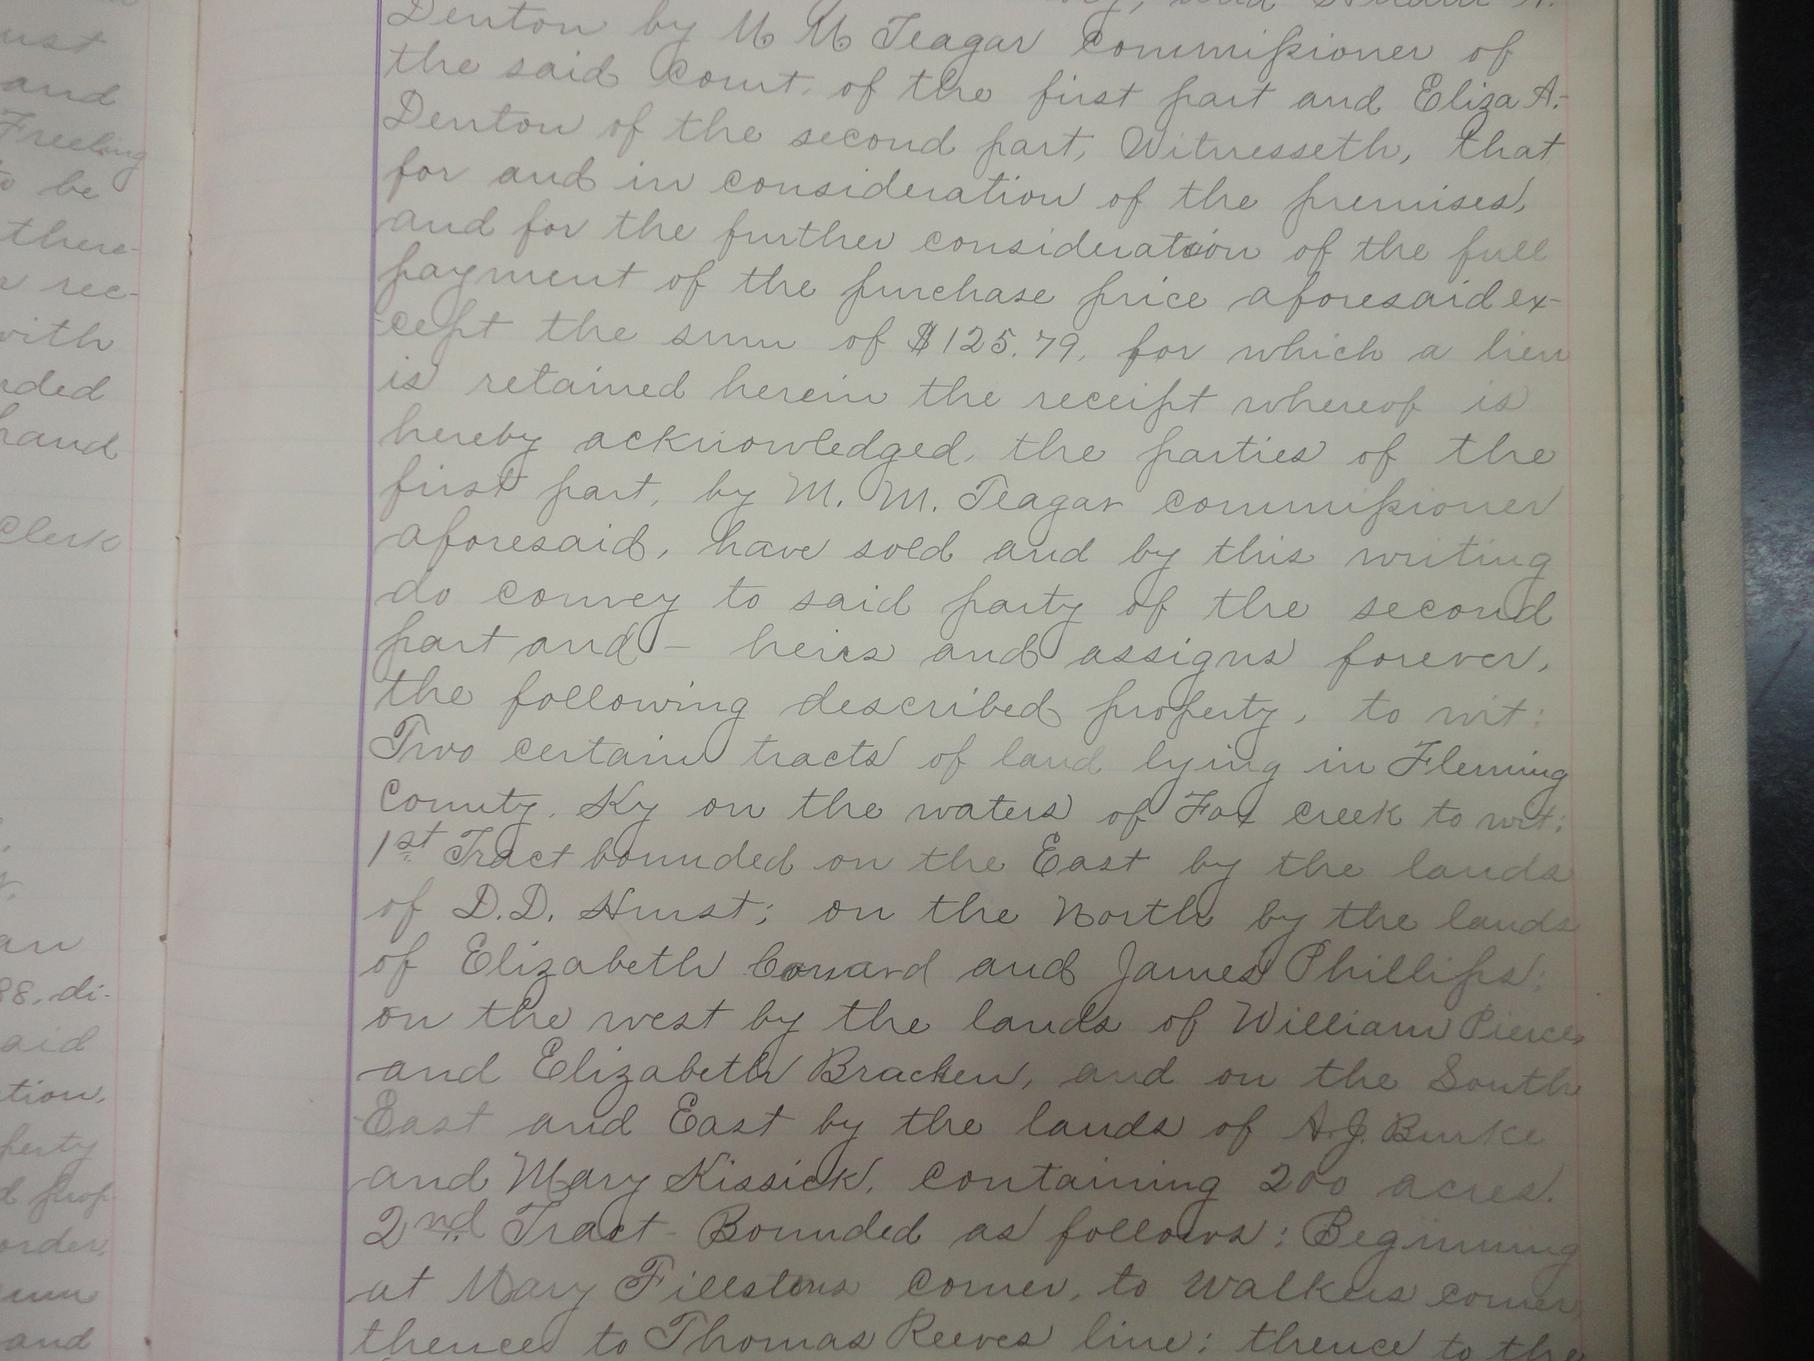 ust
and
Freeling
to be
there-
rec-
with
rded
hand
Clerk
an
88, di-
aid
ation,
perty
d prop
order,
sum
and
Denton by M M Teagar Commissioner of
the said Court, of the first part and Eliza A.
Denton of the second part, Witnesseth, that
for and in consideration of the premises,
and for the further consideration of the full
payment of the purchase price aforesaid ex-
cept the sum of $125.79, for which a lien
is retained herein the receipt whereof is
hereby acknowledged, the parties of the
first part, by M. M. Teagar commissioner
aforesaid, have sold and by this writing
do convey to said party of the second
part and - heirs and assigns forever,
the following described property, to wit:
Two certain tracts of land lying in Fleming
County, Ky on the waters of Fox creek to wit:
1st Tract bounded on the East by the lands
of D.D. Hurst; on the North by the lands
of Elizabeth Conard and James Phillips;
on the west by the lands of William Pierce
and Elizabeth Bracken, and on the South
East and East by the lands of A.J. Burke
and Mary Kissick, containing 200 acres.
2nd Tract - Bounded as follows: Beginning
at Mary Fillstons corner, to Walkers corner
thence to Thomas Reeves line; thence to the